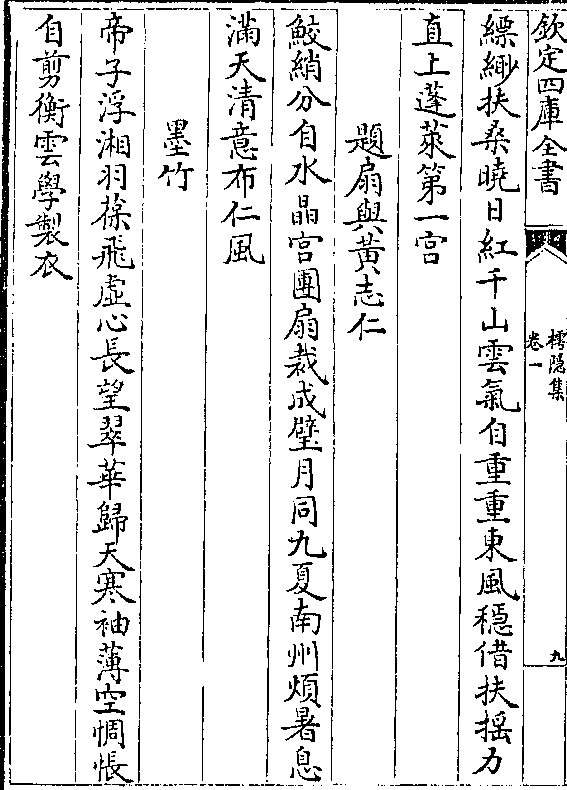 欽定四庫全書
樗隱集
卷一
九
縹緲扶桑曉日紅千山雲氣自重重東風穩借扶搖力
直上蓬萊第一宫
題扇與黃志仁
鮫綃分自水晶宫團扇裁成璧月同九夏南州煩暑息
滿天清意布仁風
墨竹
帝子浮湘羽葆飛虛心長望翠華歸天寒袖薄空惆悵
自剪衡雲學製衣